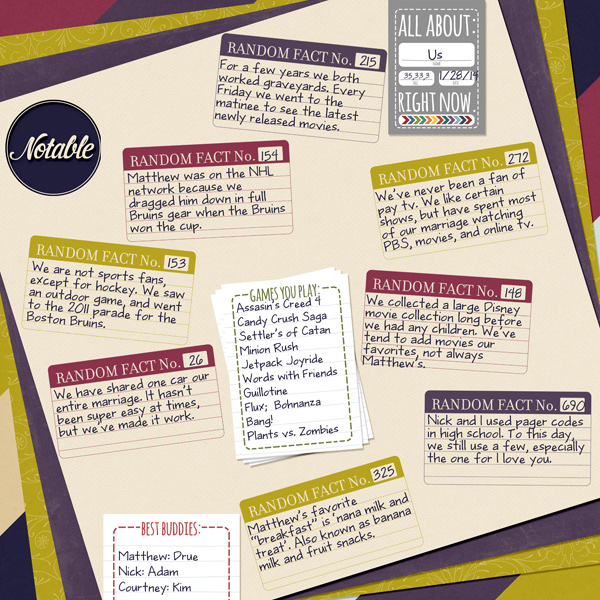 ALL ABOUT:
Us
NAME
35,33,3
1/28/14
RIGHT NOW.
RANDOM FACT No. 215
For a few years we both
worked graveyards. Every
Friday we went to the
matinee to see the latest
newly released movies.
Notable
RANDOM FACT No. 154
Matthew was on the NHL
network because we
dragged him down in full
Bruins gear when the Bruins
won the cup.
RANDOM FACT No. 272
We've never been a fan of
pay tv. We like certain
shows, but have spent most
of our marriage watching
PBS, movies, and online tv.
RANDOM FACT No. 153
We are not sports fans,
except for hockey. We saw
an outdoor game, and went
to the 2011 parade for the
Boston Bruins.
GAMES YOU PLAY:
Assasin's Creed 4
Candy Crush Saga
Settler's of Catan
Minion Rush
Jetpack Joyride
Words with Friends
Guillotine
Flux; Bohnanza
Bang!
Plants vs. Zombies
RANDOM FACT No. 148
We collected a large Disney
movie collection long before
we had any children. We've
tend to add movies our
favorites, not always
Matthew's.
RANDOM FACT No. 26
We have shared one car our
entire marriage. It hasn't
been super easy at times,
but we've made it work.
RANDOM FACT No. 690
Nick and I used pager codes
in high school. To this day,
we still use a few, especially
the one for I love you.
RANDOM FACT No. 325
Matthew's favorite
"breakfast" is 'nana milk and
treat'. Also known as banana
milk and fruit snacks.
BEST BUDDIES:
Matthew: Drue
Nick: Adam
Courtney: Kim